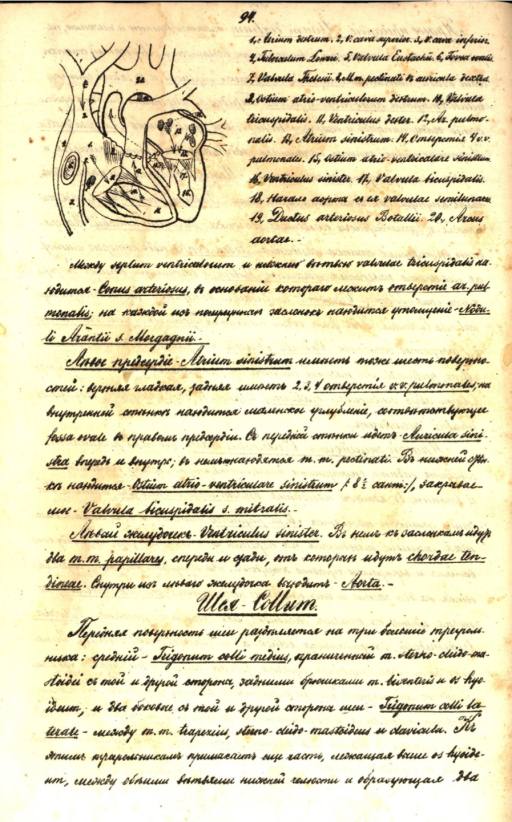 94.
1, Atrium dextrum. 2, v. cava superior. 3, v. cava inferior.
4, Tuberculum Loweri. 5, Valvula Eustachii. 6, Fovea ovalis.
7, Valvula Thebesii. 8, Mm. pectinati в auricula dextra.
9, Ostium atrio-ventriculorum dextrum. 10, Valvula
tricuspidalis. 11, Ventriculus dexter. 12, Ar. pulmo-
nalis. 13, Atrium sinistrum. 14, Отверстія 4 v.v.
pulmonales. 15, Ostium atrio-ventriculare sinistrum
16, Ventriculus sinister. 17, Valvula bicuspidalis.
18, Начало аорты съ ея valvulae semilunares
19, Ductus arteriosus Botallii. 20, Arcus
aortae.-
Между septum ventriculorum и нижнею вѣтвью valvulae tricuspidalis на-
ходится - Conus arteriosus, въ основаніи котораго лежитъ отверстіе ar. pul-
monalis; на каждой изъ полулунныхъ заслонокъ находится утолщеніе - Nodu-
li Arantii s. Morgagnii.-
Лѣвое предсердіе - Atrium sinistrum имѣетъ тоже шесть поверхно-
стей: верхняя гладкая, задняя имѣетъ 2, 3, 4 отверстія v.v. pulmonales; на
внутренной стѣнкѣ находится маленькое углубленіе, соотвѣтствующее
fossa ovale въ правомъ предсердіи. Съ передней стѣнки идетъ - Auricula sini-
stra впередъ и внутрь; въ немъ находятся m. m. pectinati. Въ нижней стѣн-
кѣ находится - Ostium atrio-ventriculare sinistrum /: 8½ сант:/, закривае-
мое - Valvula bicuspidalis s. mitralis.-
Лѣвый желудочекъ - Ventriculus sinister. Въ немъ къ заслонкамъ идутъ
два m. m. papillares, спереди и сзади, отъ которыхъ идутъ chordae ten-
dineae. Снутри изъ лѣваго желудочка выходитъ - Aorta.-
Шея - Collum.
Передняя поверхность шеи раздѣляется на три большіе треуголь-
ника: средній - Trigonum colli medius, ограниченный m. sterno-cleido-ma-
stoidei съ той и другой стороны, задними брюшками m. biventeris и os hyo-
ideum, и два боковые, съ той и другой стороны шеи - Trigonum colli la-
terale - между m. m. trapezius, sterno-cleido-mastoideus и clavicula. Къ
этимъ треугольникамъ примыкаетъ еще часть, лежащая выше os hyoide-
um, между обѣими вѣтвями нижней челюсти и образующая два